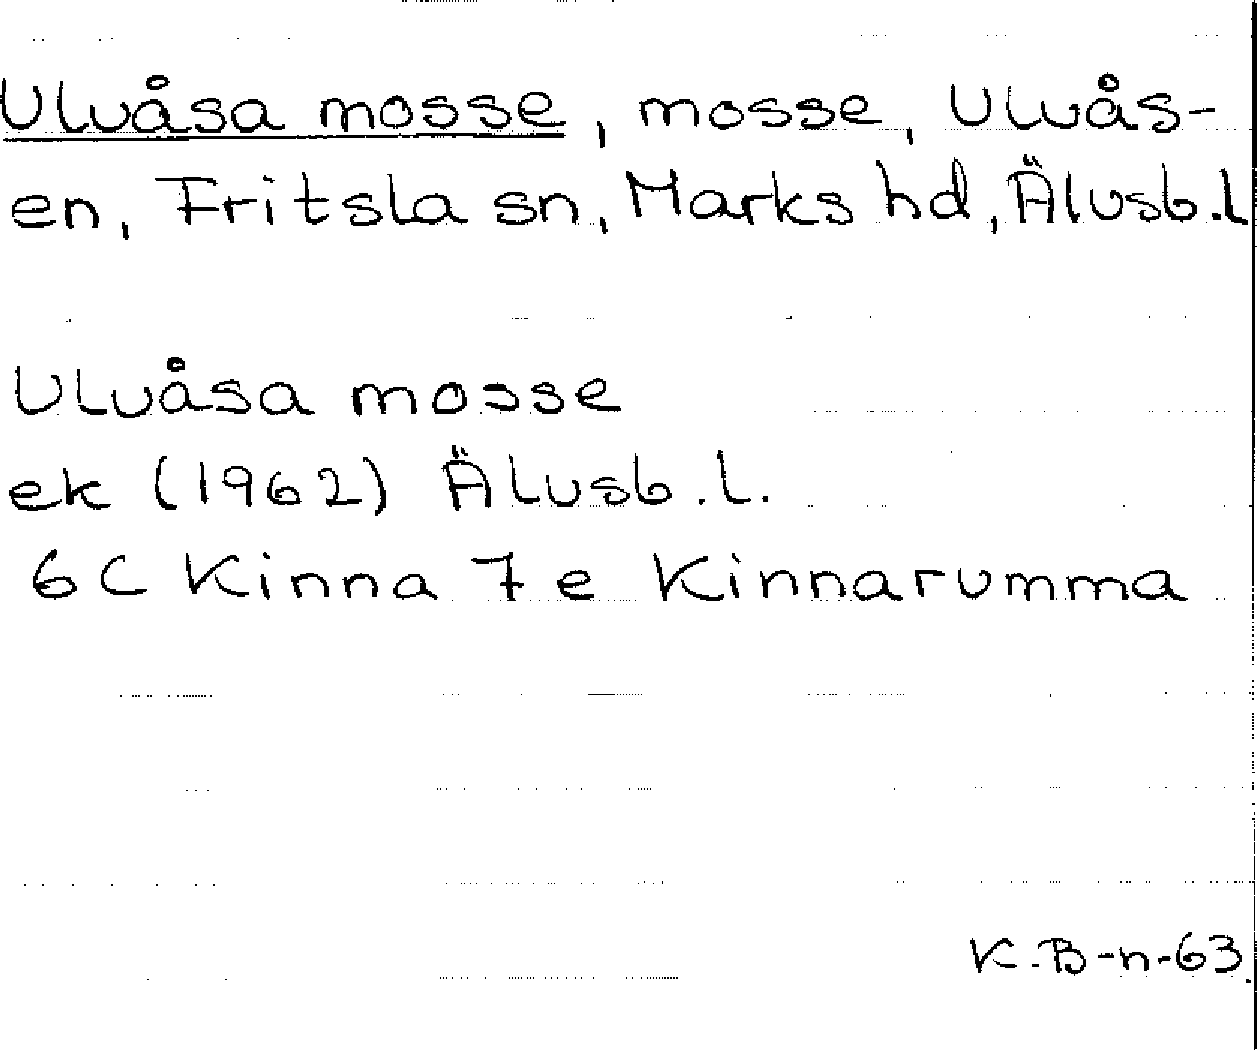 Ulvåsa mosse, mosse, Ulvås-
en, Fritsla sn, Marks hd, Älvsb.l
Ulvåsa mosse
ek (1962) Älvsb.l.
6C Kinna 7e Kinnarumma
K.B-n-63.